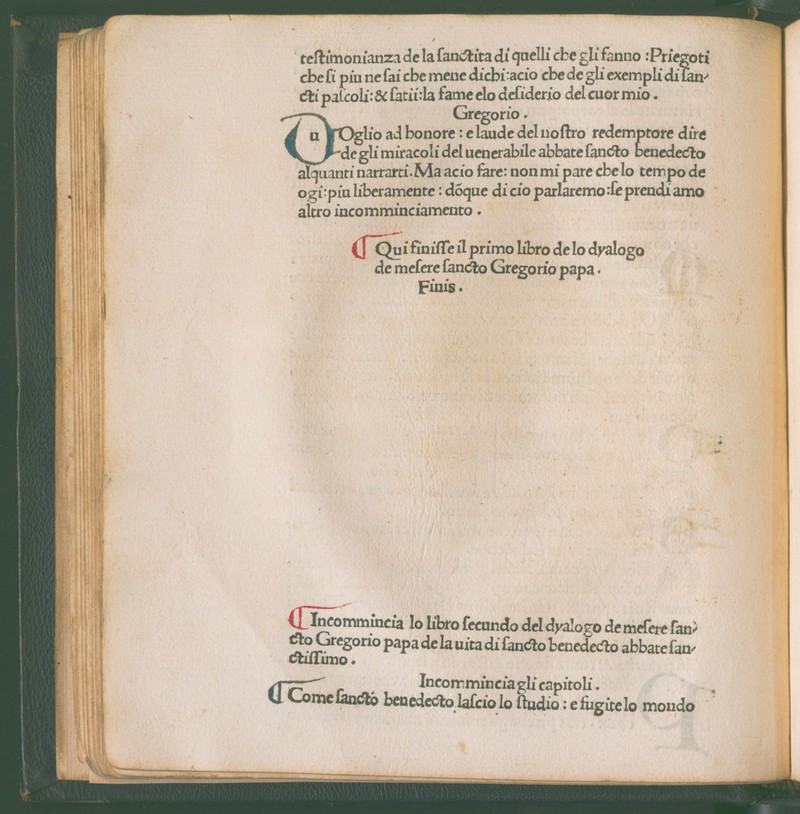 teſtimonianza de la ſanctita di quelli che gli fanno :Priegoti
che ſi piu ne ſai che mene dichi:acio che de gli exempli di ſan-
cti paſcoli:& ſatii:la fame elo deſiderio del cuor mio .
Gregorio .
u Oglio ad honore : e laude del noſtro redemptore dire
de gli miracoli del uenerabile abbate ſancto benedecto
alquanti narrarti.Ma acio fare: non mi pare che lo tempo de
ogi:piu liberamente : dõque di cio parlaremo:ſe prendi amo
altro incomminciamento .
¶ Qui finiſſe il primo libro de lo dyalogo
de meſere ſancto Gregorio papa .
Finis .
¶ Incommincia lo libro ſecundo del dyalogo de meſere ſan-
cto Gregorio papa de la uita di ſancto benedecto abbate ſan-
ctiſſimo .
Incommincia gli capitoli .
¶ Come ſancto benedecto laſcio lo ſtudio : e fugite lo mondo